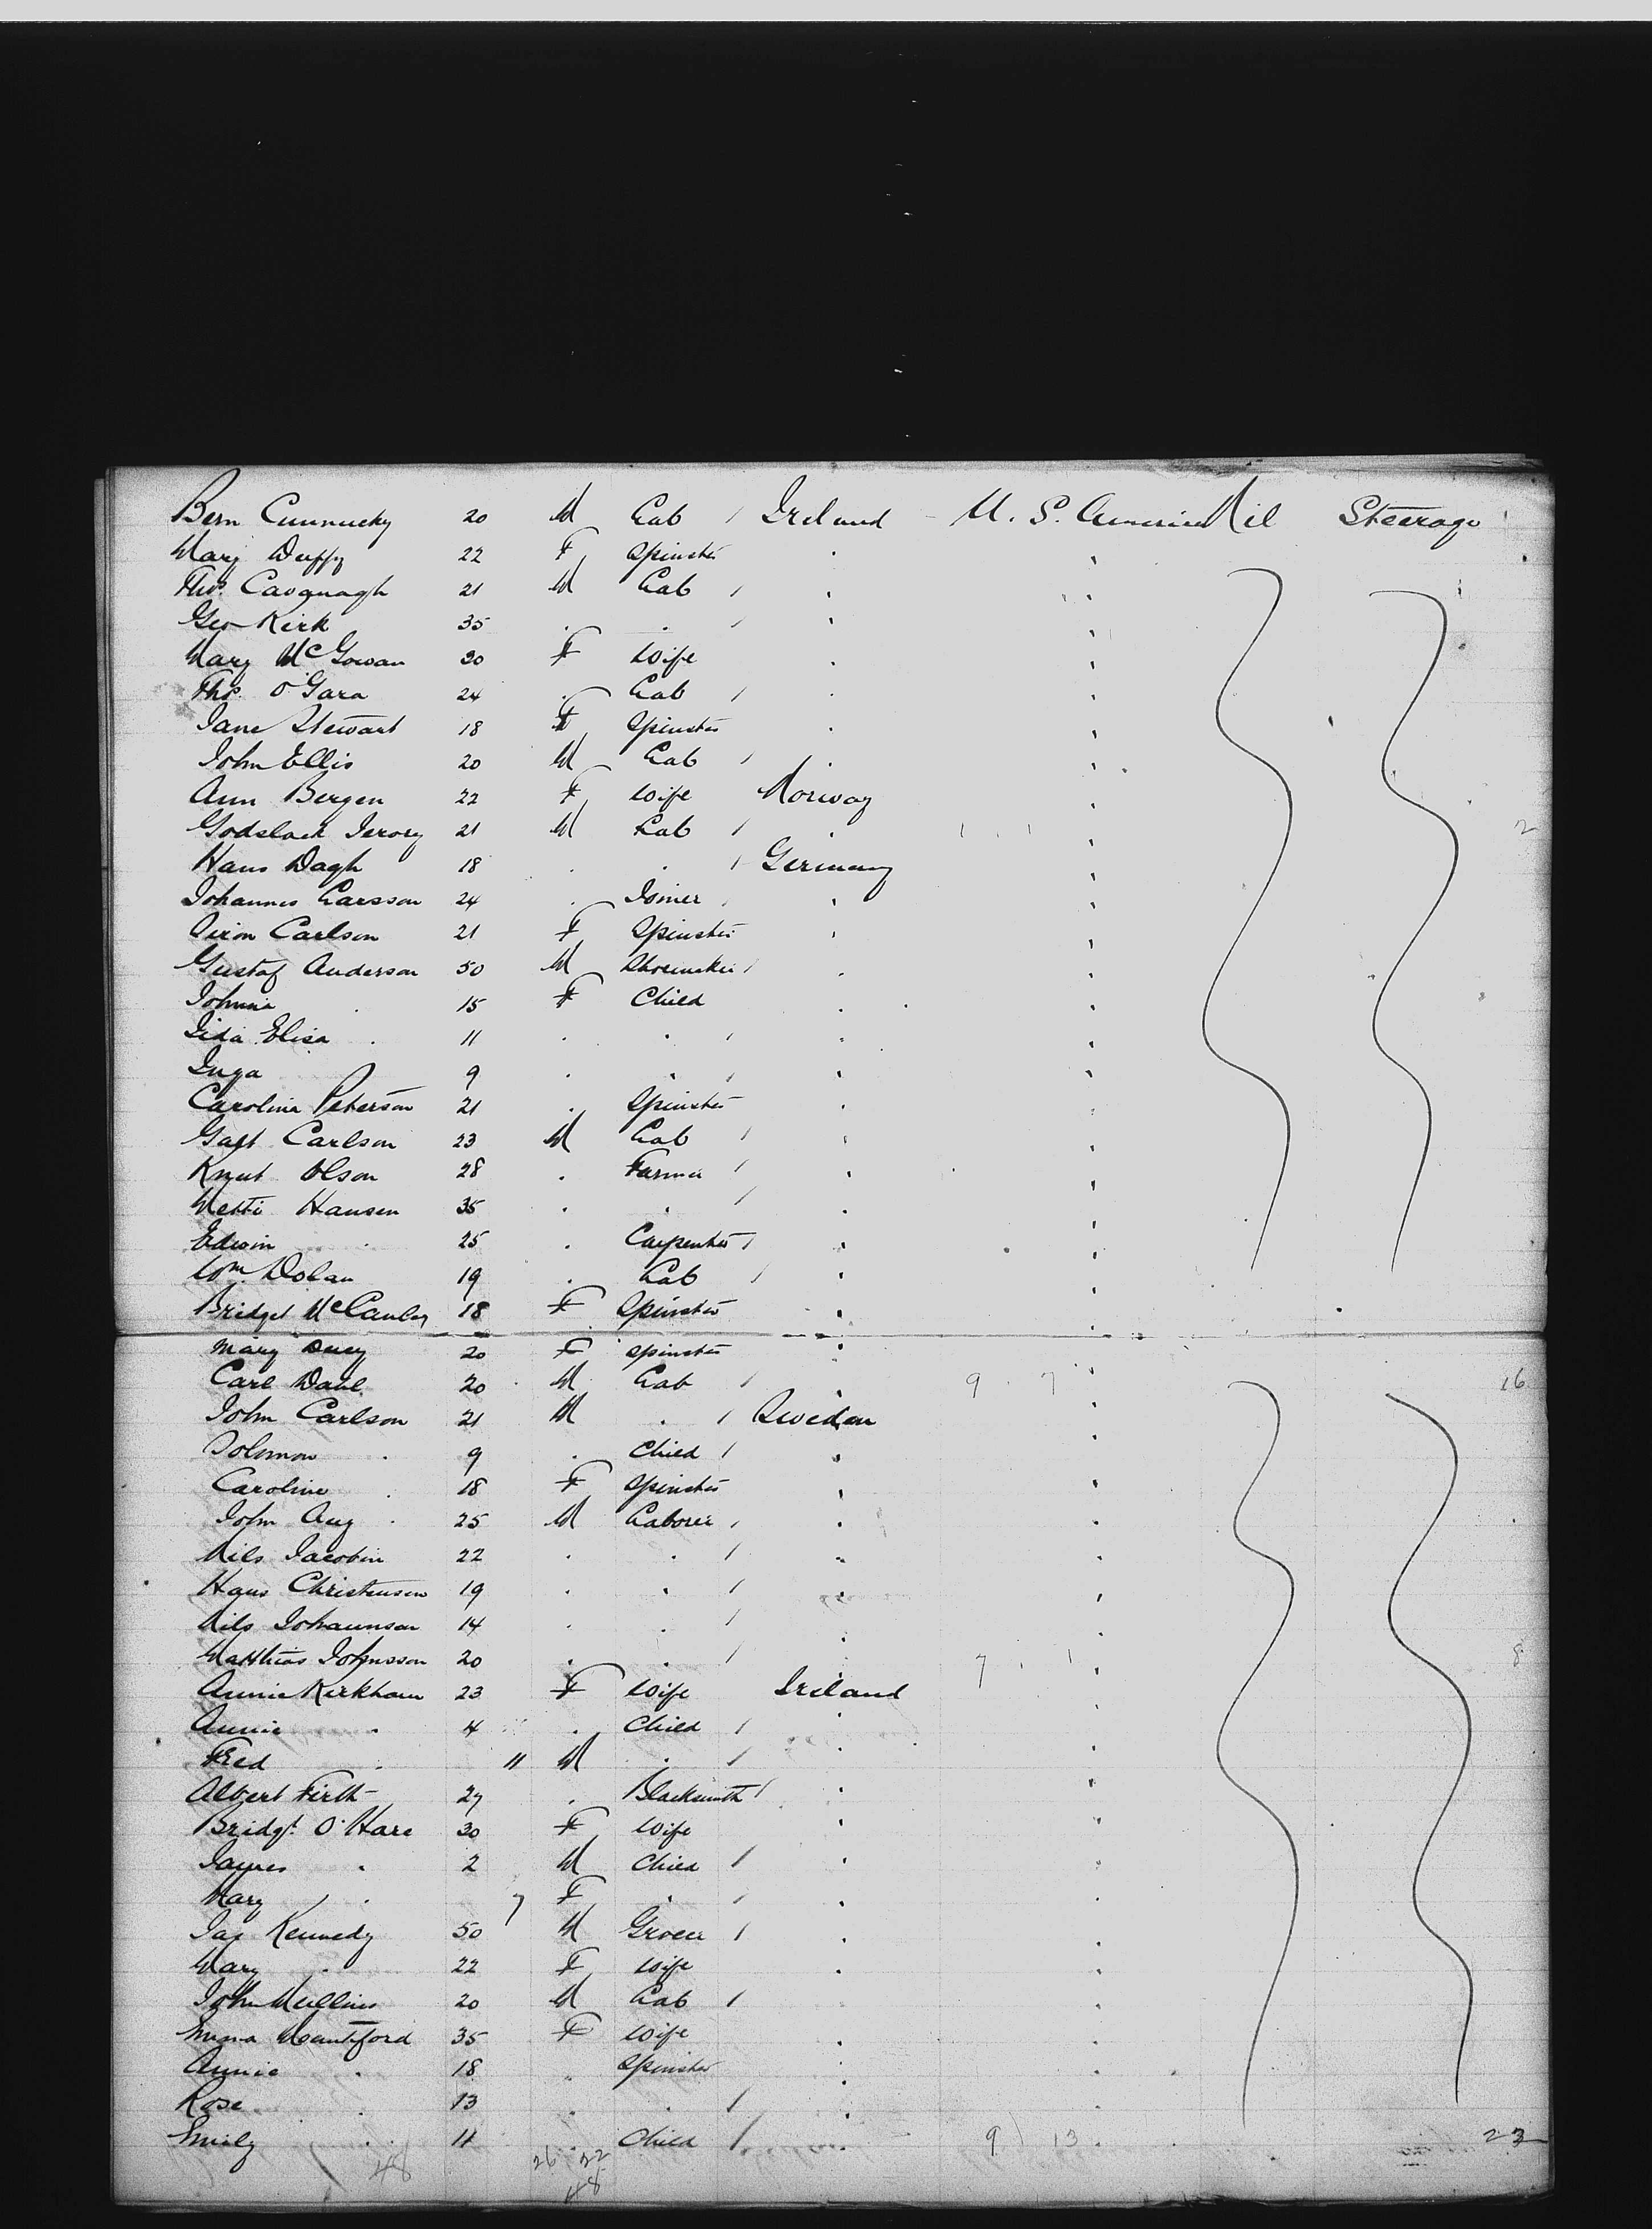 Bern Cunnucky 20 M Lab / Ireland - U. S. America Nil Steerage
Mary Duffy 22 F Spinster
Thos. Cavanagh 21 M Lab /
Geo Kirk 35 . . /
Mary McGowan 30 F Wife
Thos. O'Gara 24 . Lab /
Jane Stewart 18 F Spinster
John Ellis 20 M Lab /
Ann Bergen 22 F Wife Norway
Godslack 21 M Lab / 1 . 1 2
Hans Dagh 18 . . / Germany
Johannes Larsson 24 . Joiner /
Carlson 21 F Spinster
Gustaf Anderson 50 M Shoemaker /
15 F Child
Elisa . 11 . . /
Inga 9 . . /
Carolina Peterson 21 . Spinster
Carlson 23 M Lab /
Knut Olson 28 . Farmer /
Hansen 35 . . /
Edwin . 25 . Carpenter /
Wm. Dolan 19 . Lab /
Bridget McCauley 18 F Spinster
Mary 20 F Spinster
Carl Dahl 20 M Lab / 9 . 7 16
John Carlson 21 M . / Sweden
Solomon . 9 . Child /
Caroline . 18 F Spinster
John Aug . 25 M Laborer /
Nils Jacobin 22 . . /
Hans Christensen 19 . . /
Nils Johannson 14 . . /
Matthias Johnsson 20 . . / 7 . 1 8
Annie Kirkham 23 F Wife Ireland
Annie . 4 . Child /
Fred . 11 M . /
Albert Firth 27 . Blacksmith /
Bridgt. O'Hare 30 F Wife
James . 2 M Child /
Mary . 7 F . /
Jas Kennedy 50 M Grocer /
Mary . 22 F Wife
John Mullins 20 M Lab /
Emma Mountford 35 F Wife
Annie . 18 . Spinster
Rose . 13 . . /
Emily . 11 . Child / 9 13 23
48 26 22
48